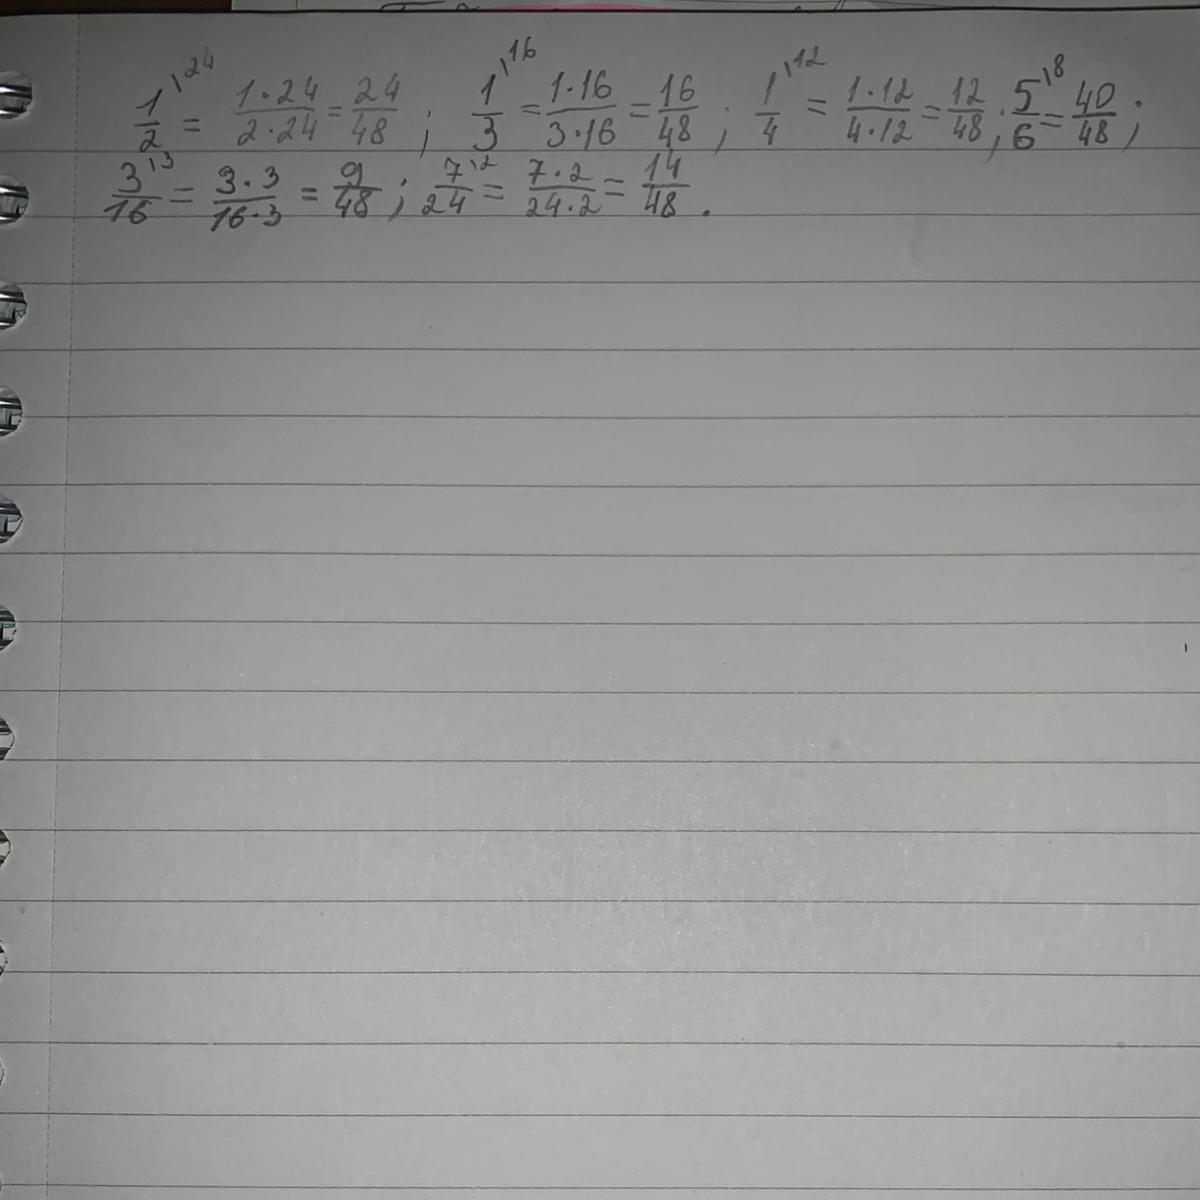 1/2 \24 = 1·24/2·24 = 24/48 ; 1/3 \16 = 1·16/3·16 = 16/48 ; 1/4 \12 = 1·12/4·12 = 12/48 ; 5/6 \8 = 40/48 ;
3/16 \3 = 3·3/16·3 = 9/48 ; 7/24 \2 = 7·2/24·2 = 14/48 .